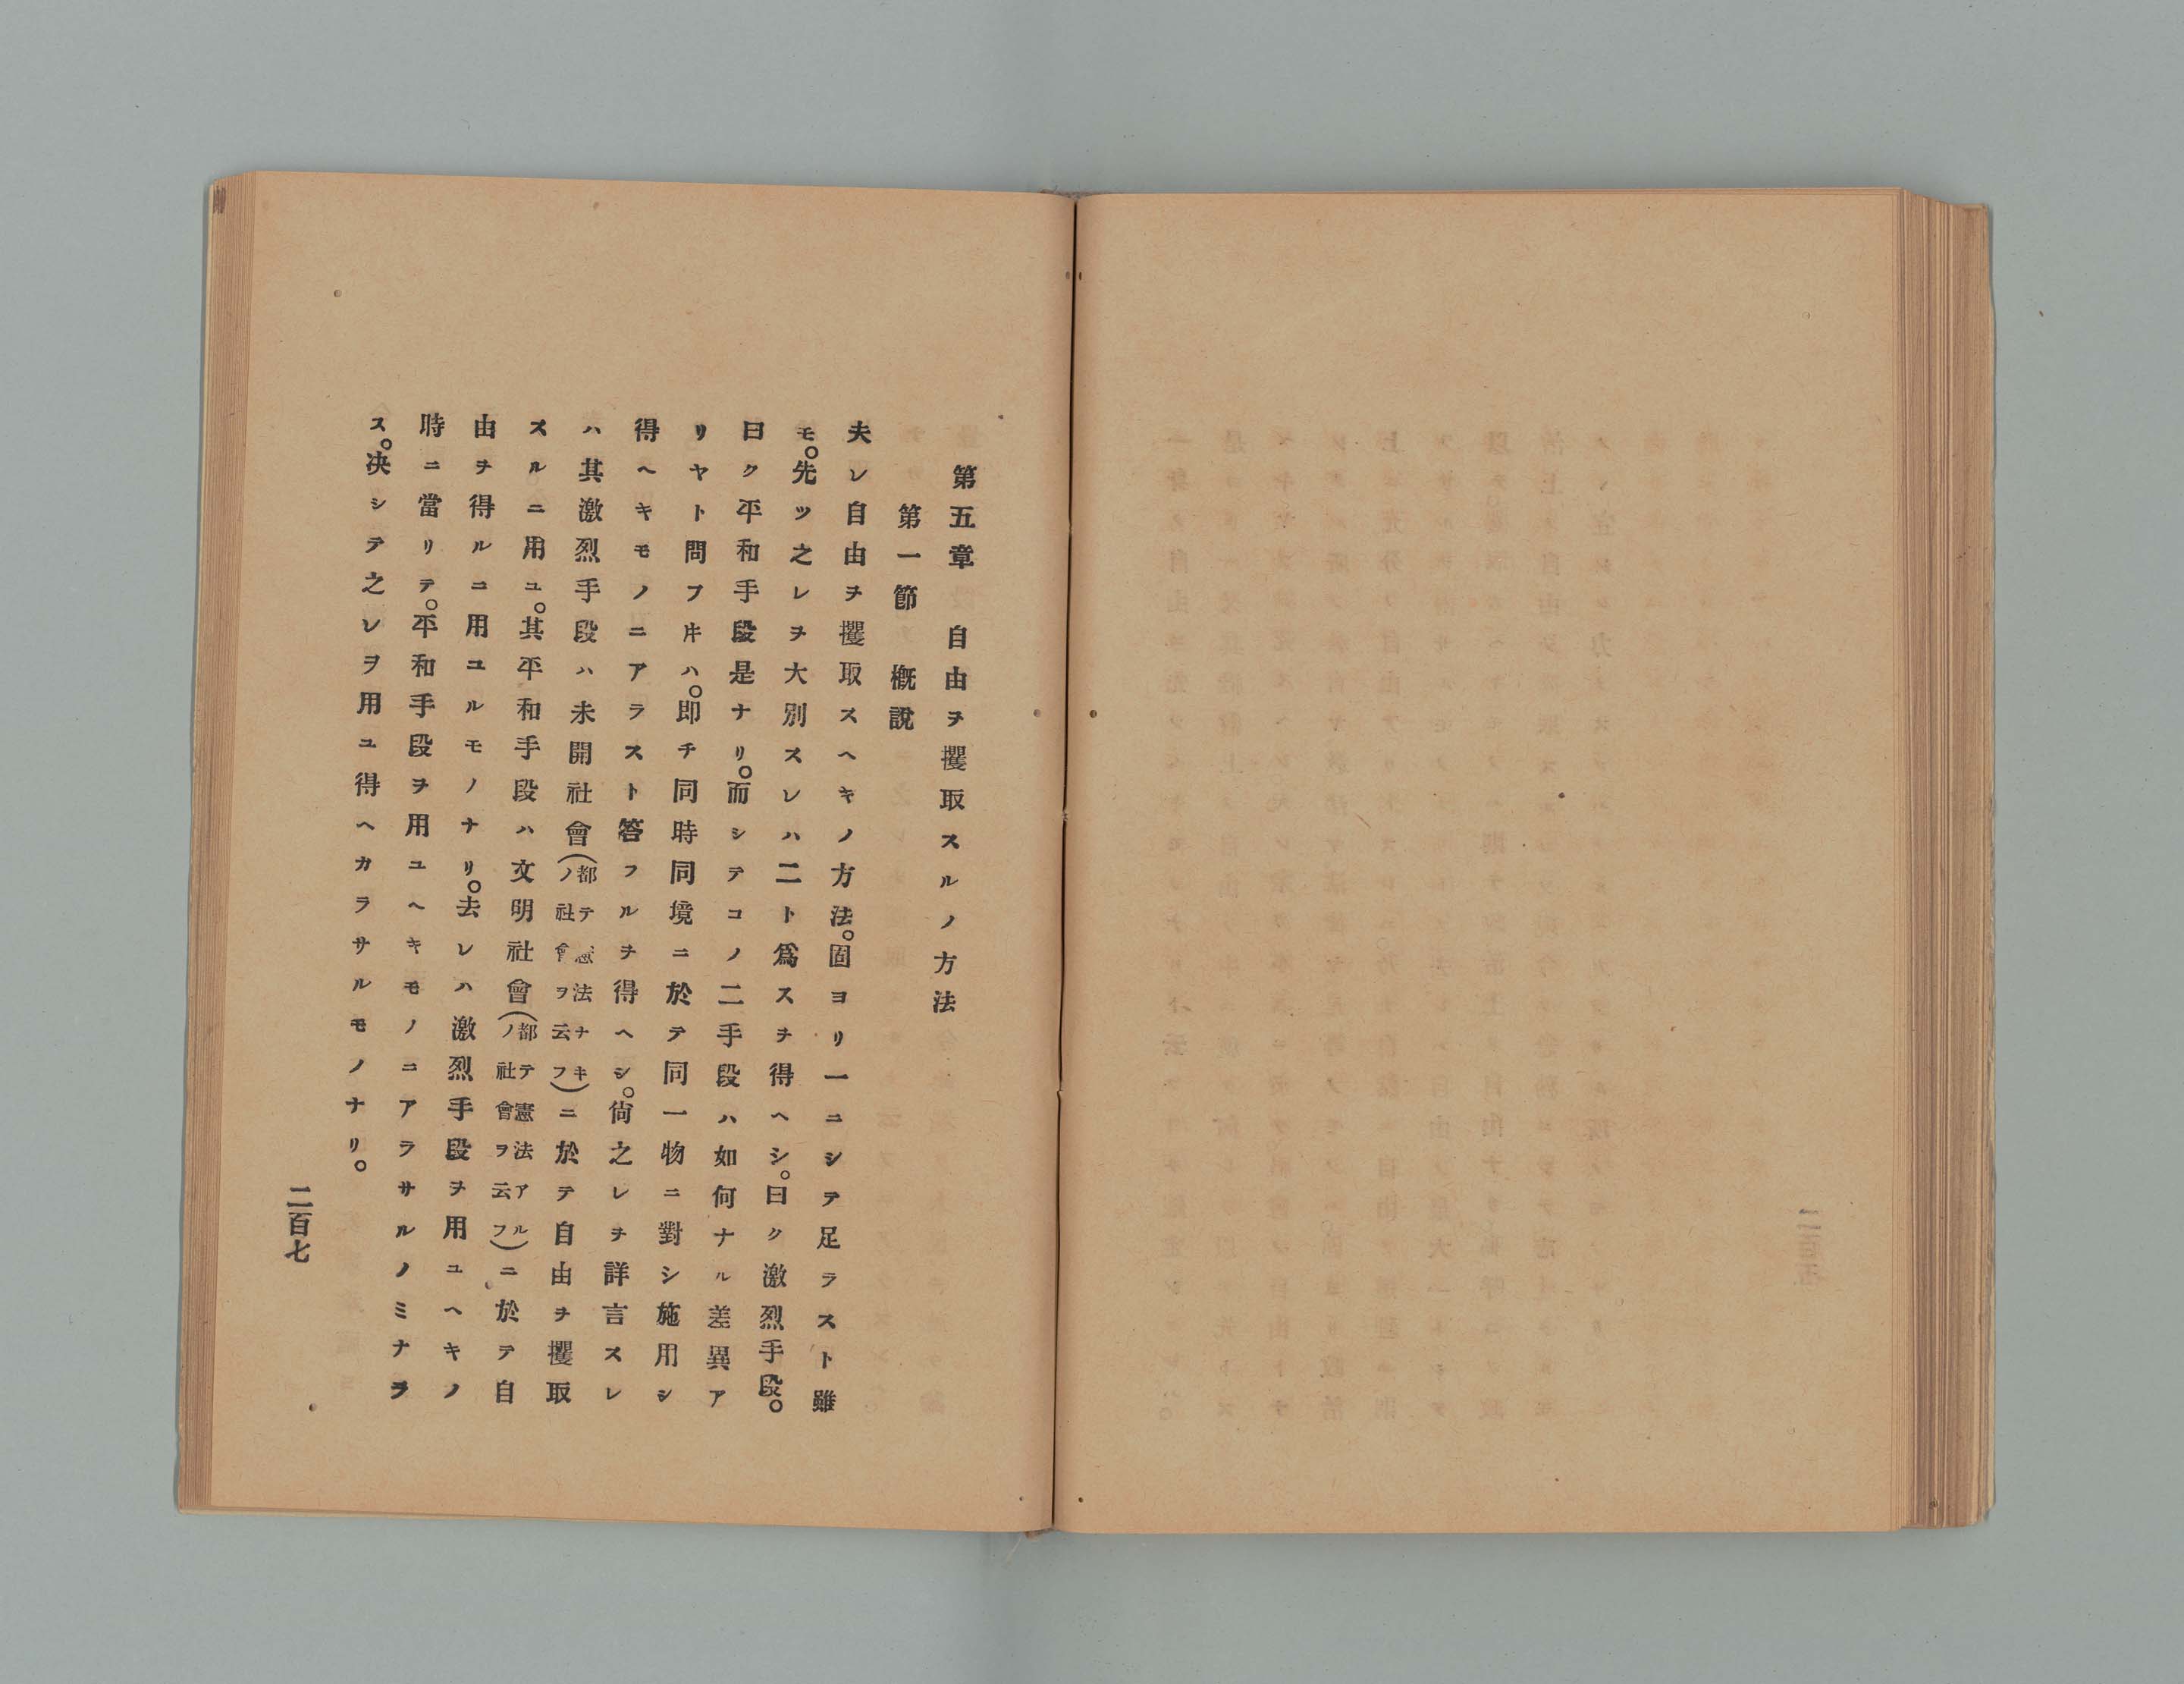 第五章　自由ヲ攫取スルノ方法
第一節　概說
夫レ自由ヲ攫取スヘキノ方法。固ヨリ一ニシテ足ラスト雖
モ。先ツ之レヲ大別スレハ二ト爲スヲ得ヘシ。曰ク激烈手段。
曰ク平和手段是ナリ。而シテコノ二手段ハ如何ナル差異ア
リヤト問フ𪜈ハ。即チ同時同境ニ於テ同一物ニ對シ施用シ
得ヘキモノニアラスト答フルヲ得ヘシ。尙之レヲ詳言スレ
ハ其激烈手段ハ未開社會（都テ憲法ナキノ社會ヲ云フ）ニ於テ自由ヲ攫取
スルニ用ユ。其平和手段ハ文明社會（都テ憲法アルノ社會ヲ云フ）ニ於テ自
由ヲ得ルニ用ユルモノナリ。去レハ激烈手段ヲ用ユヘキノ
時ニ當リテ。平和手段ヲ用ユヘキモノニアラサルノミナラ
ス。决シテ之レヲ用ユ得ヘカラサルモノナリ。
二百七